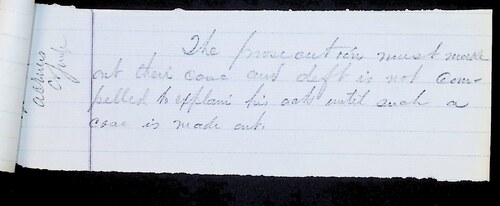 The prosecution must make
out their case and deft is not Com-
pelled to explain his acts until such a
case is made out.